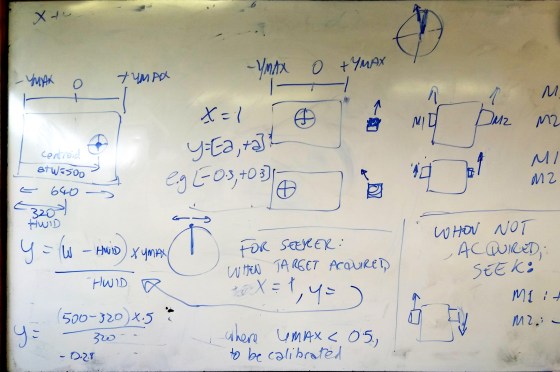 X +
-YMAX 0 +YMAX
centroid
at W=500
640
320
HWID
Y = (W - HWID) x YMAX
HWID
Y = (500-320) x.5
320
-YMAX 0 +YMAX
X = 1
Y=[-a, +a]
e.g [-0.3, +0.3]
FOR SEEKER:
WHEN TARGET ACQUIRED
X = 1, Y =
where YMAX < 0.5,
to be calibrated
M1 M2
M1
M2
M1
M2
WHEN NOT
ACQUIRED,
SEEK:
M1 : +
M2 : -